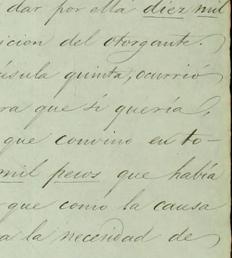 dar por ella diez mil
icion del otorgante.
úsula quinta, ocurrió
ra que si queria,
que convino en to-
mil pesos que habia
que como la causa
a la necesidad de